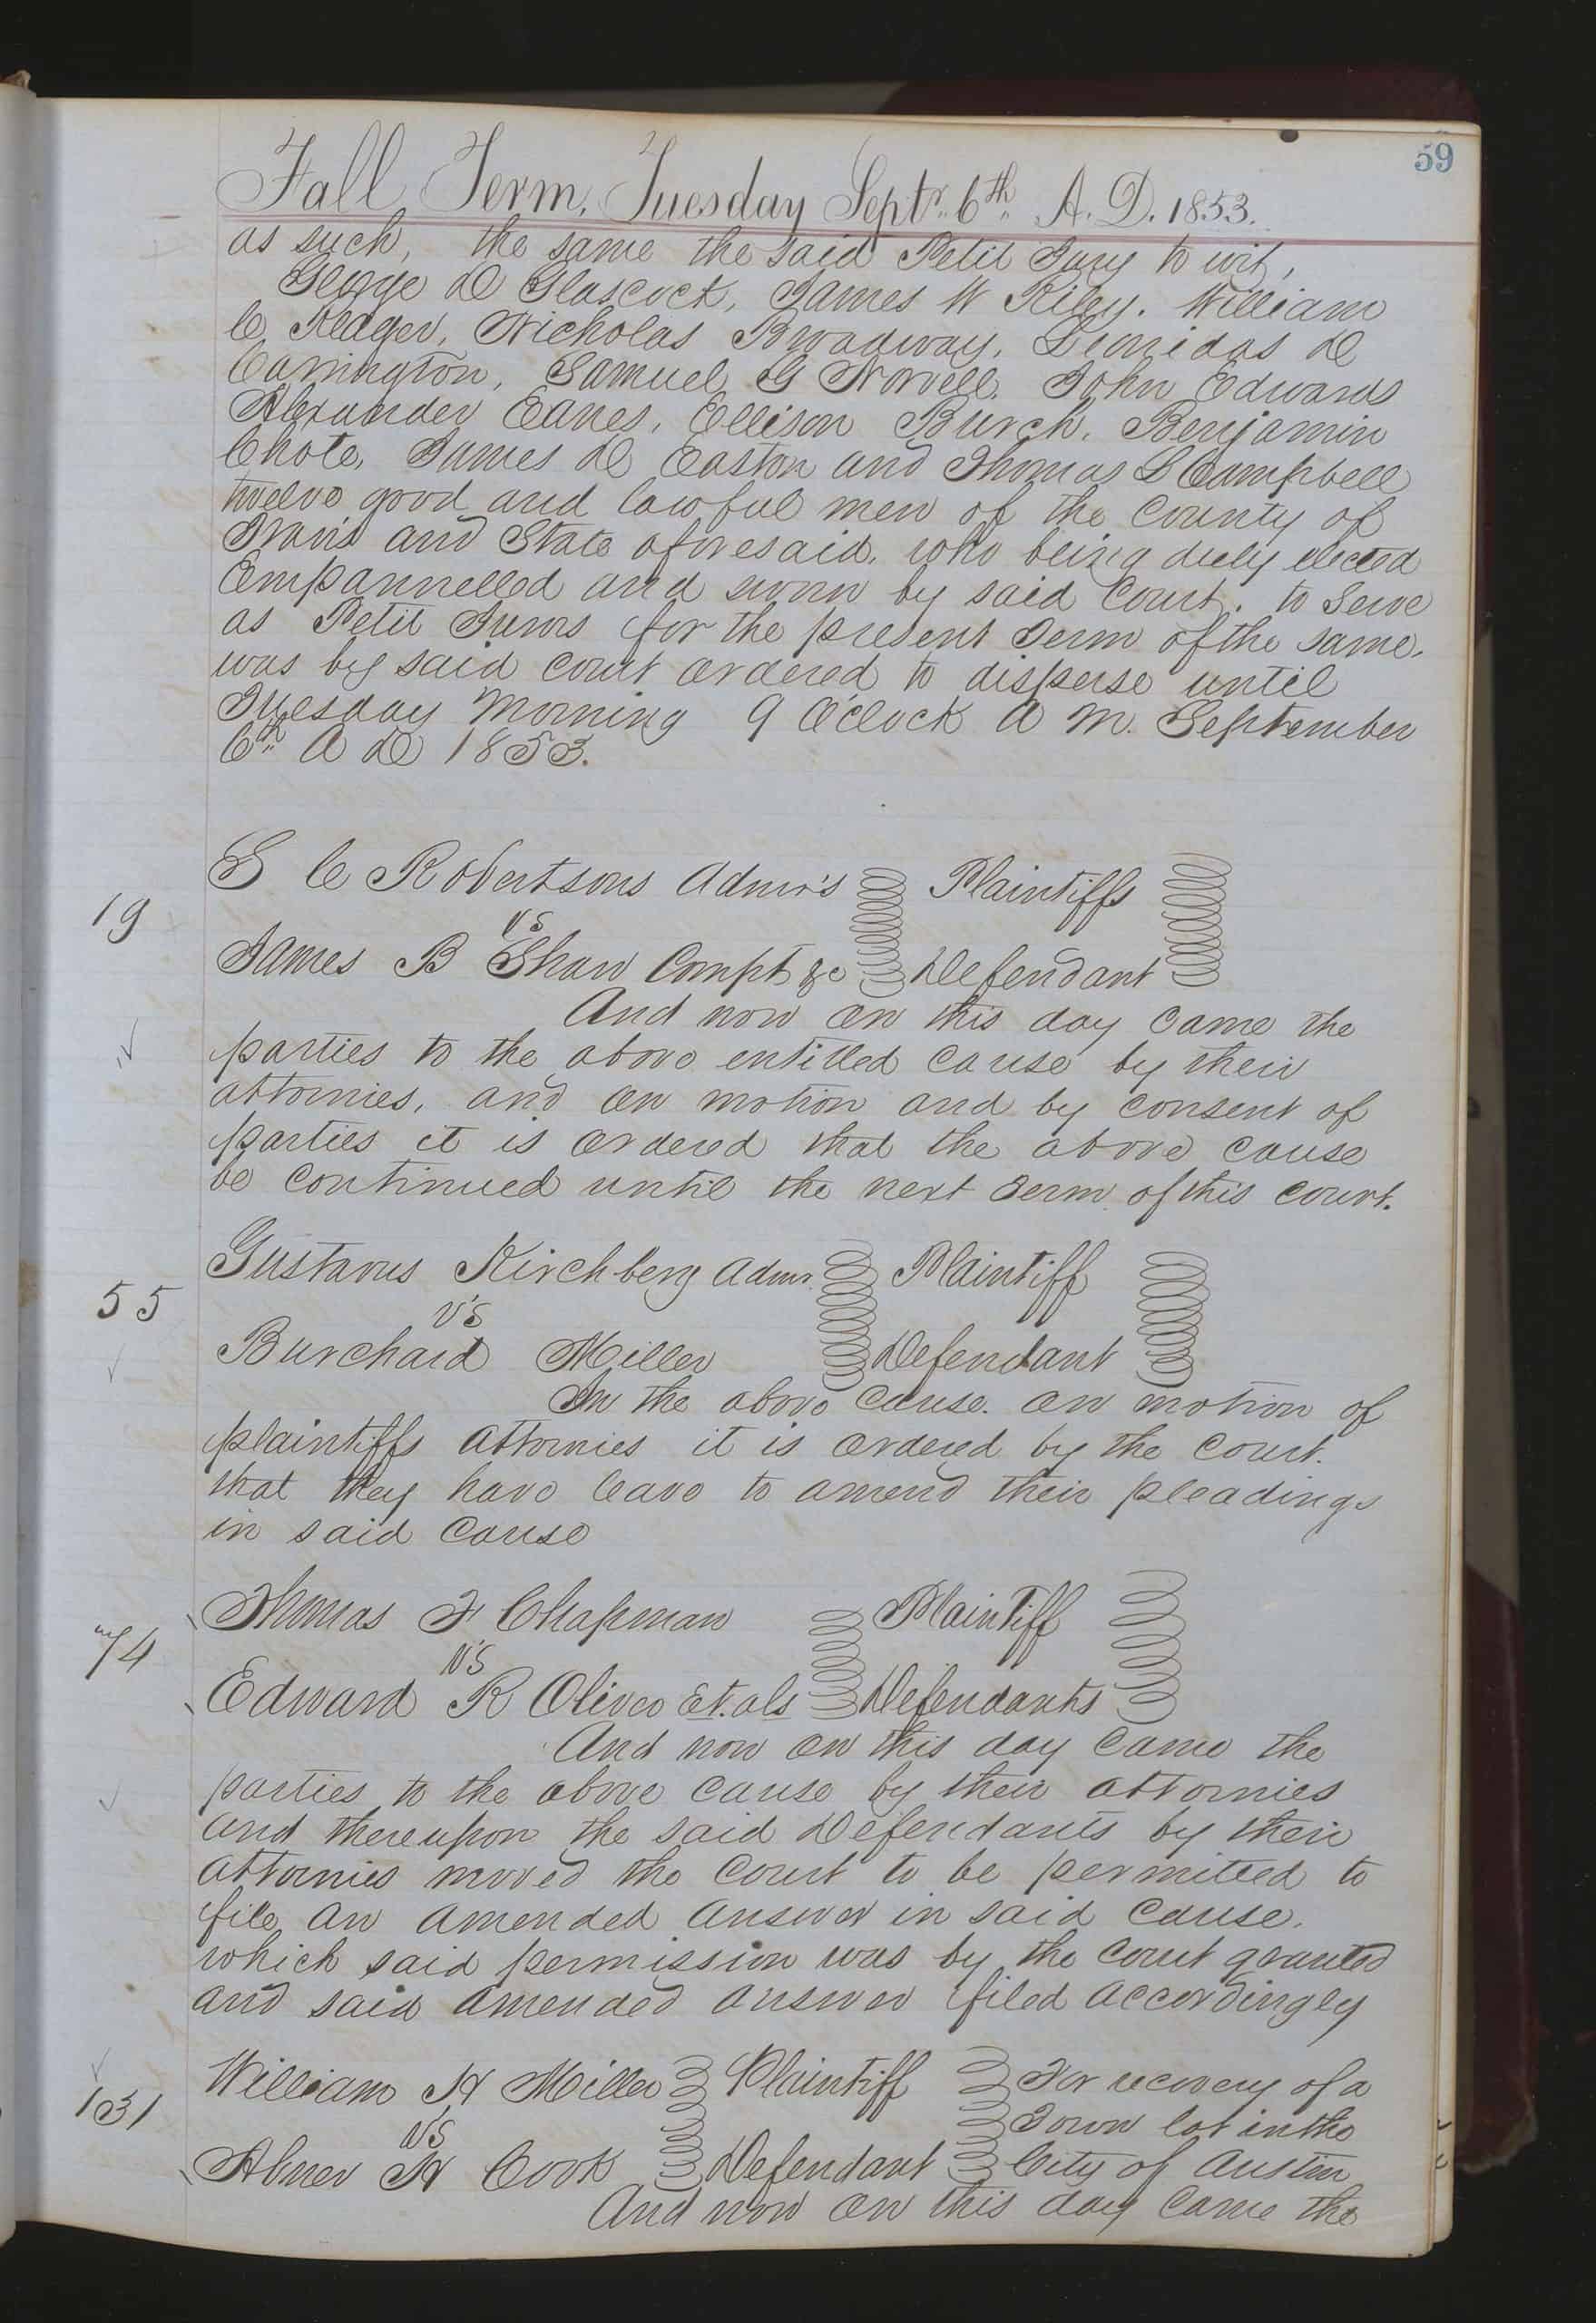 59
Fall Term, Tuesday Septr. 6th A. D. 1853.
as such, the same the said Petit Jury to wit,
George D Glascock, James W Riley. William
C Kleager, Nicholas Broadway, Leonidas D
Carrington, Samuel G Norvell. John Edwards
Alexander Eanes, Ellison Burch, Benjamin
Chote, James D Easton and Thomas L Campbell
twelve good and lawful men of the County of
Travis and State aforesaid, who being duly elected
Empannelled and sworn by said Court, to Serve
as Petit Jurors for the present Term of the same.
was by said court ordered to disperse until
Tuesday Morning 9 O'Clock A M. September
6th A D 1853.
S C Robertsons Admr's Plaintiffs
19 vs
James B Shaw Compt &c Defendant
And now on this day came the
parties to the above entitled cause by their
attornies, and on motion and by consent of
parties it is ordered that the above cause
be continued until the next Term of this court.
Gustavus Kirchberg Admr. Plaintiff
55 vs
Burchard Miller Defendant
In the above cause. on motion of
plaintiffs attornies it is ordered by the court.
that they have leave to amend their pleadings
in said cause
Thomas F Chapman Plaintiff
74 vs
Edward R Oliver Et. als Defendants
And now on this day came the
parties to the above cause by their attornies
and thereupon the said Defendants by their
attornies moved the Court to be permitted to
file an amended answer in said cause.
which said permission was by the Court granted
and said amended answer filed accordingly
William H Miller Plaintiff For recovery of a
131 vs Town lot in the
Abner H Cook Defendant City of Austin
And now on this day came the